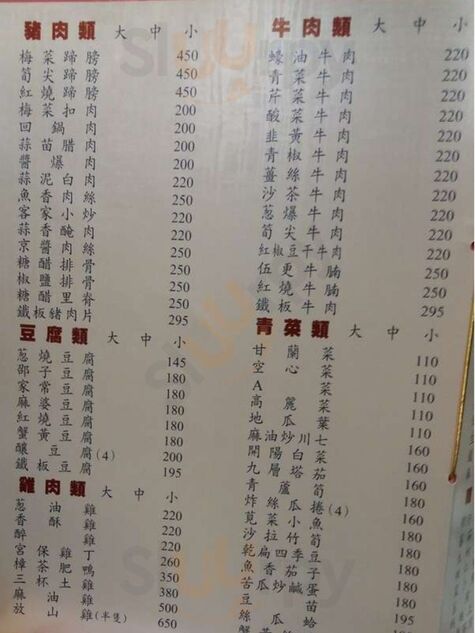 豬肉類 大 中 小
梅菜蹄膀 450
筍尖蹄膀 450
紅燒蹄膀 450
梅菜扣肉 200
回鍋肉 200
蒜苗臘肉 200
醬爆肉 200
蒜泥白肉 220
魚香肉絲 250
客家小炒 220
蒜香醃肉 220
京醬肉絲 250
糖醋排骨 250
椒鹽排骨 250
糖醋里脊 250
鐵板豬肉片 295
豆腐類 大 中 小
蔥燒豆腐 145
邵子豆腐 180
家常豆腐 180
麻婆豆腐 180
紅燒豆腐 180
蟹黃豆腐 180
釀豆腐(4) 200
鐵板豆腐 195
雞肉類 大 中 小
蔥油雞 220
香酥雞 220
醉雞 220
宮保雞丁 260
樟茶肥鴨 350
三杯土雞 380
麻油雞 500
放山雞(半隻) 650
牛肉類 大 中 小
蠔油牛肉 220
青菜牛肉 220
芹菜牛肉 220
酸菜牛肉 220
韭黃牛肉 220
青椒牛肉 220
薑絲牛肉 220
沙茶牛肉 220
蔥爆牛肉 220
筍尖牛肉 220
紅椒豆干牛肉 220
伍更牛腩 250
紅燒牛腩 250
鐵板牛肉 295
青菜類 大 中 小
甘蘭菜 110
空心菜 110
A菜 110
高麗菜 110
地瓜葉 110
麻油炒川七 160
開陽白菜 160
九層塔茄 160
青蘆筍 180
炸絲瓜捲(4) 160
莧菜小魚 180
沙拉竹筍 180
乾扁四季豆 180
魚香茄子 180
苦瓜炒鹹蛋 180
豆苗 195
絲瓜蛤